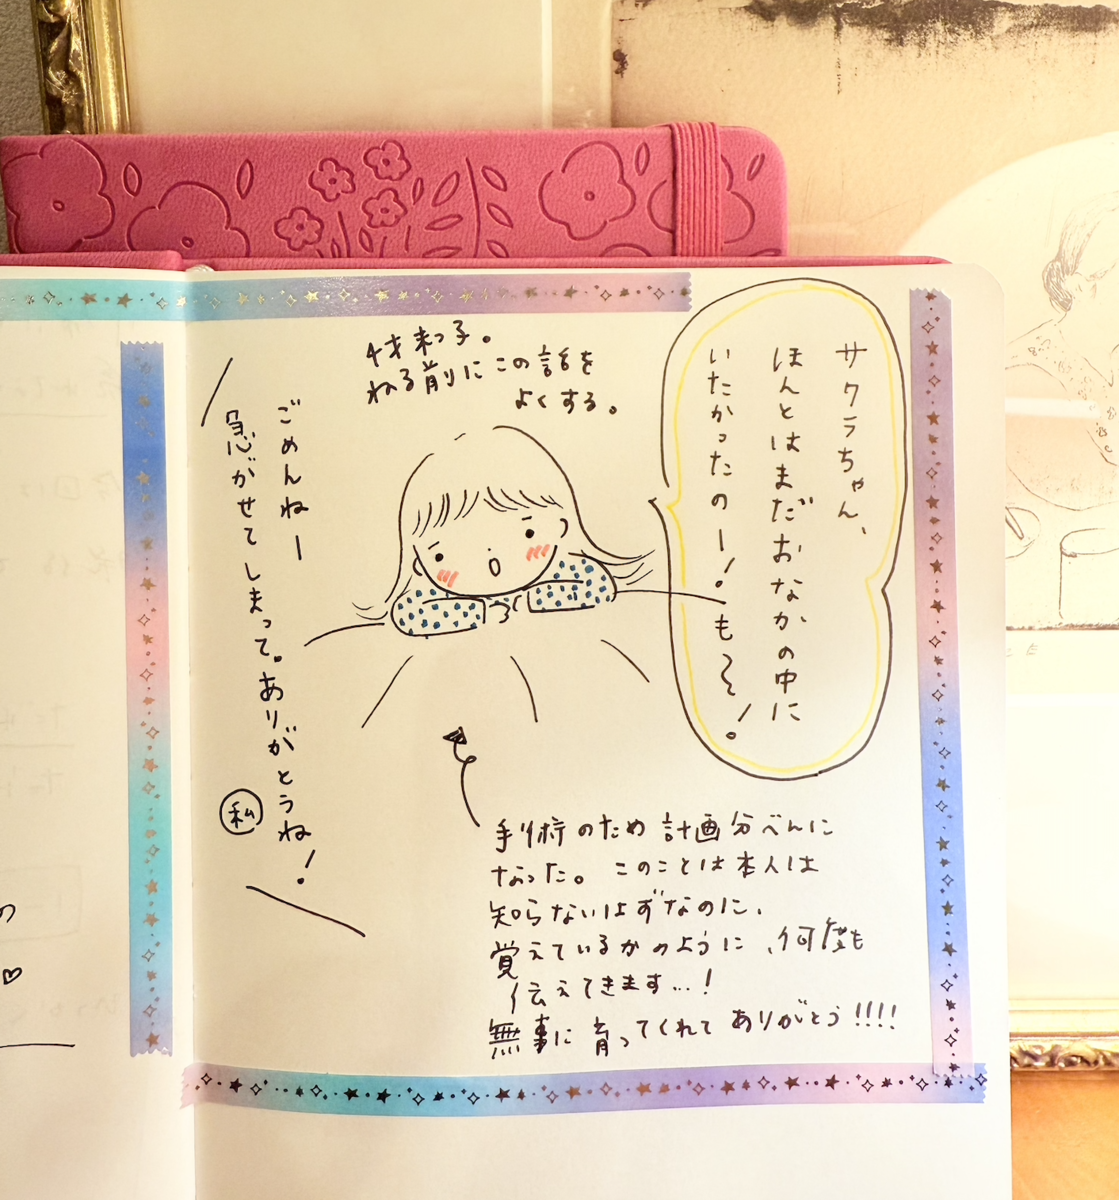 4才末っ子。
ねる前にこの話を
よくする。
サクラちゃん、
ほんとはまだおなかの中に
いたかったのー!も〜!
ごめんねー
急がせてしまって。ありがとうね!
私
手術のため計画分べんに
なった。このことは本人は
知らないはずなのに、
覚えているかのように、何度も
伝えてきます…!
無事に育ってくれてありがとう!!!!